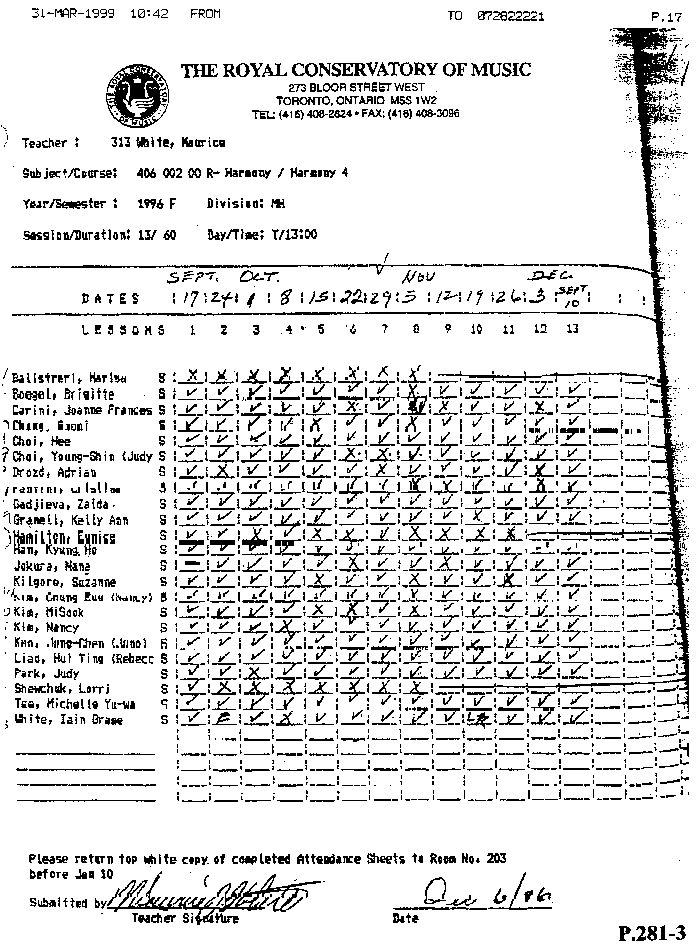 31-MAR-1999 10:42 FROM TO 072822221 P.17
THE ROYAL CONSERVATORY OF MUSIC
273 BLOOR STREET WEST
TORONTO, ONTARIO M5S 1W2
TEL: (416) 408-2824 • FAX: (416) 408-3096
Teacher : 313 White, Maurice
Subject/Course: 406 002 00 R- Harmony / Harmony 4
Year/Semester : 1996 F Division: MH
Session/Duration: 13/ 60 Day/Time: T/13:00
SEPT. OCT. NOV DEC
DATES 17 24 1 8 15 22 29 5 12 19 26 3 SEPT 10
LESSONS 1 2 3 4 5 6 7 8 9 10 11 12 13
Balistreri, Marisa S X X X X X X X X
Boegel, Brigitte S
Carini, Joanne Frances S
Chang, S
Choi, Hee S
Choi, Young-Shin (Judy S
Drozd, Adrian S
S
Gadjieva, Zaida S
Granell, Kelly Ann S
Hamilton, Eunice S
Han, Kyung Ho S
Jokura, Nana S
Kilgore, Suzanne S
Kim, Chung Eun (Nancy) S
Kim, MiSook S
Kim, Nancy S
Kuo, Jung-Chen (Juno) S
Liao, Hui Ting (Rebecc S
Park, Judy S
Shewchuk, Lorri S
Tse, Michelle Yu-wa S
White, Iain Brase S
Please return top white copy of completed Attendance Sheets to Room No. 203
before Jan 10
Submitted by Dec 6/96
Teacher Signature Date
P.281-3